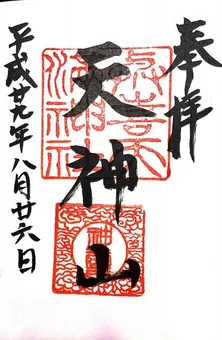 奉拝
天神山
平成廿九年八月廿六日